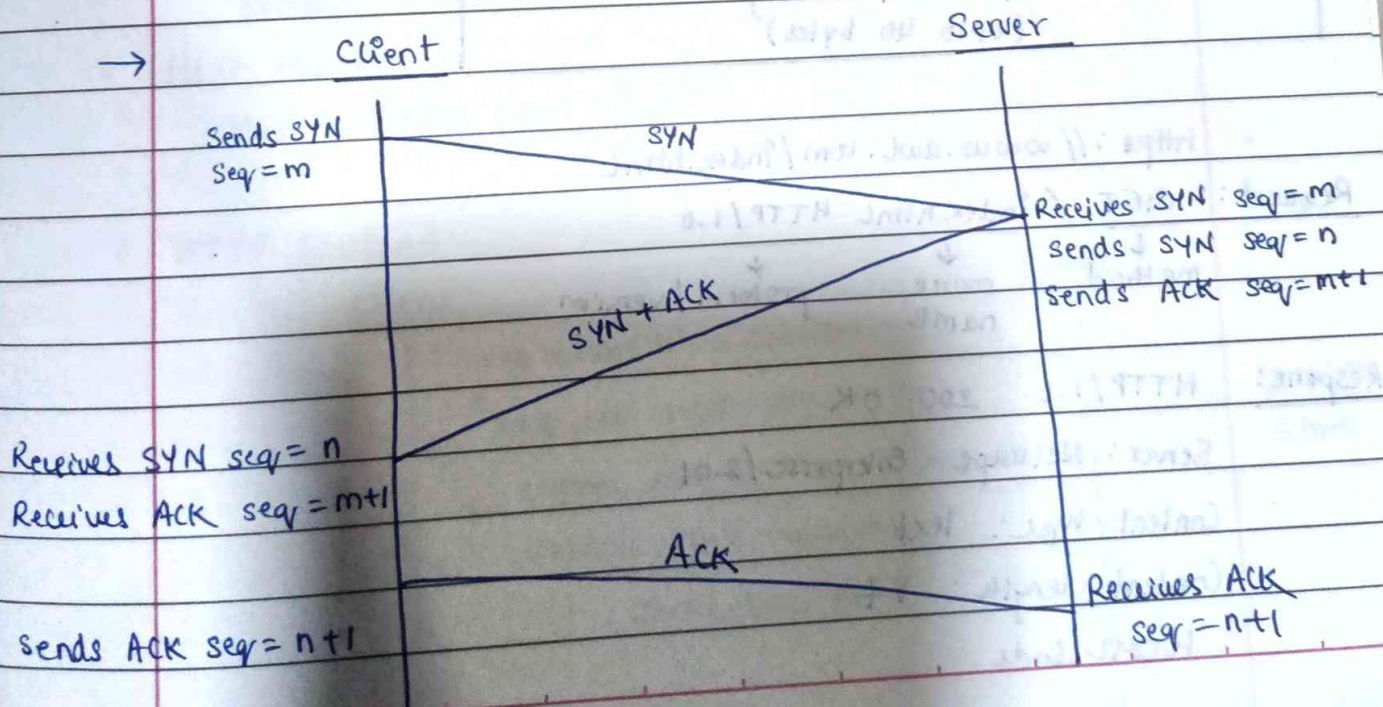 → Client
Server
Sends SYN
seq = m
SYN
Receives SYN seq = m
sends SYN seq = n
sends ACK seq = m+1
SYN + ACK
Receives SYN seq = n
Receives ACK seq = m+1
ACK
Receives ACK
seq = n+1
sends ACK seq = n+1